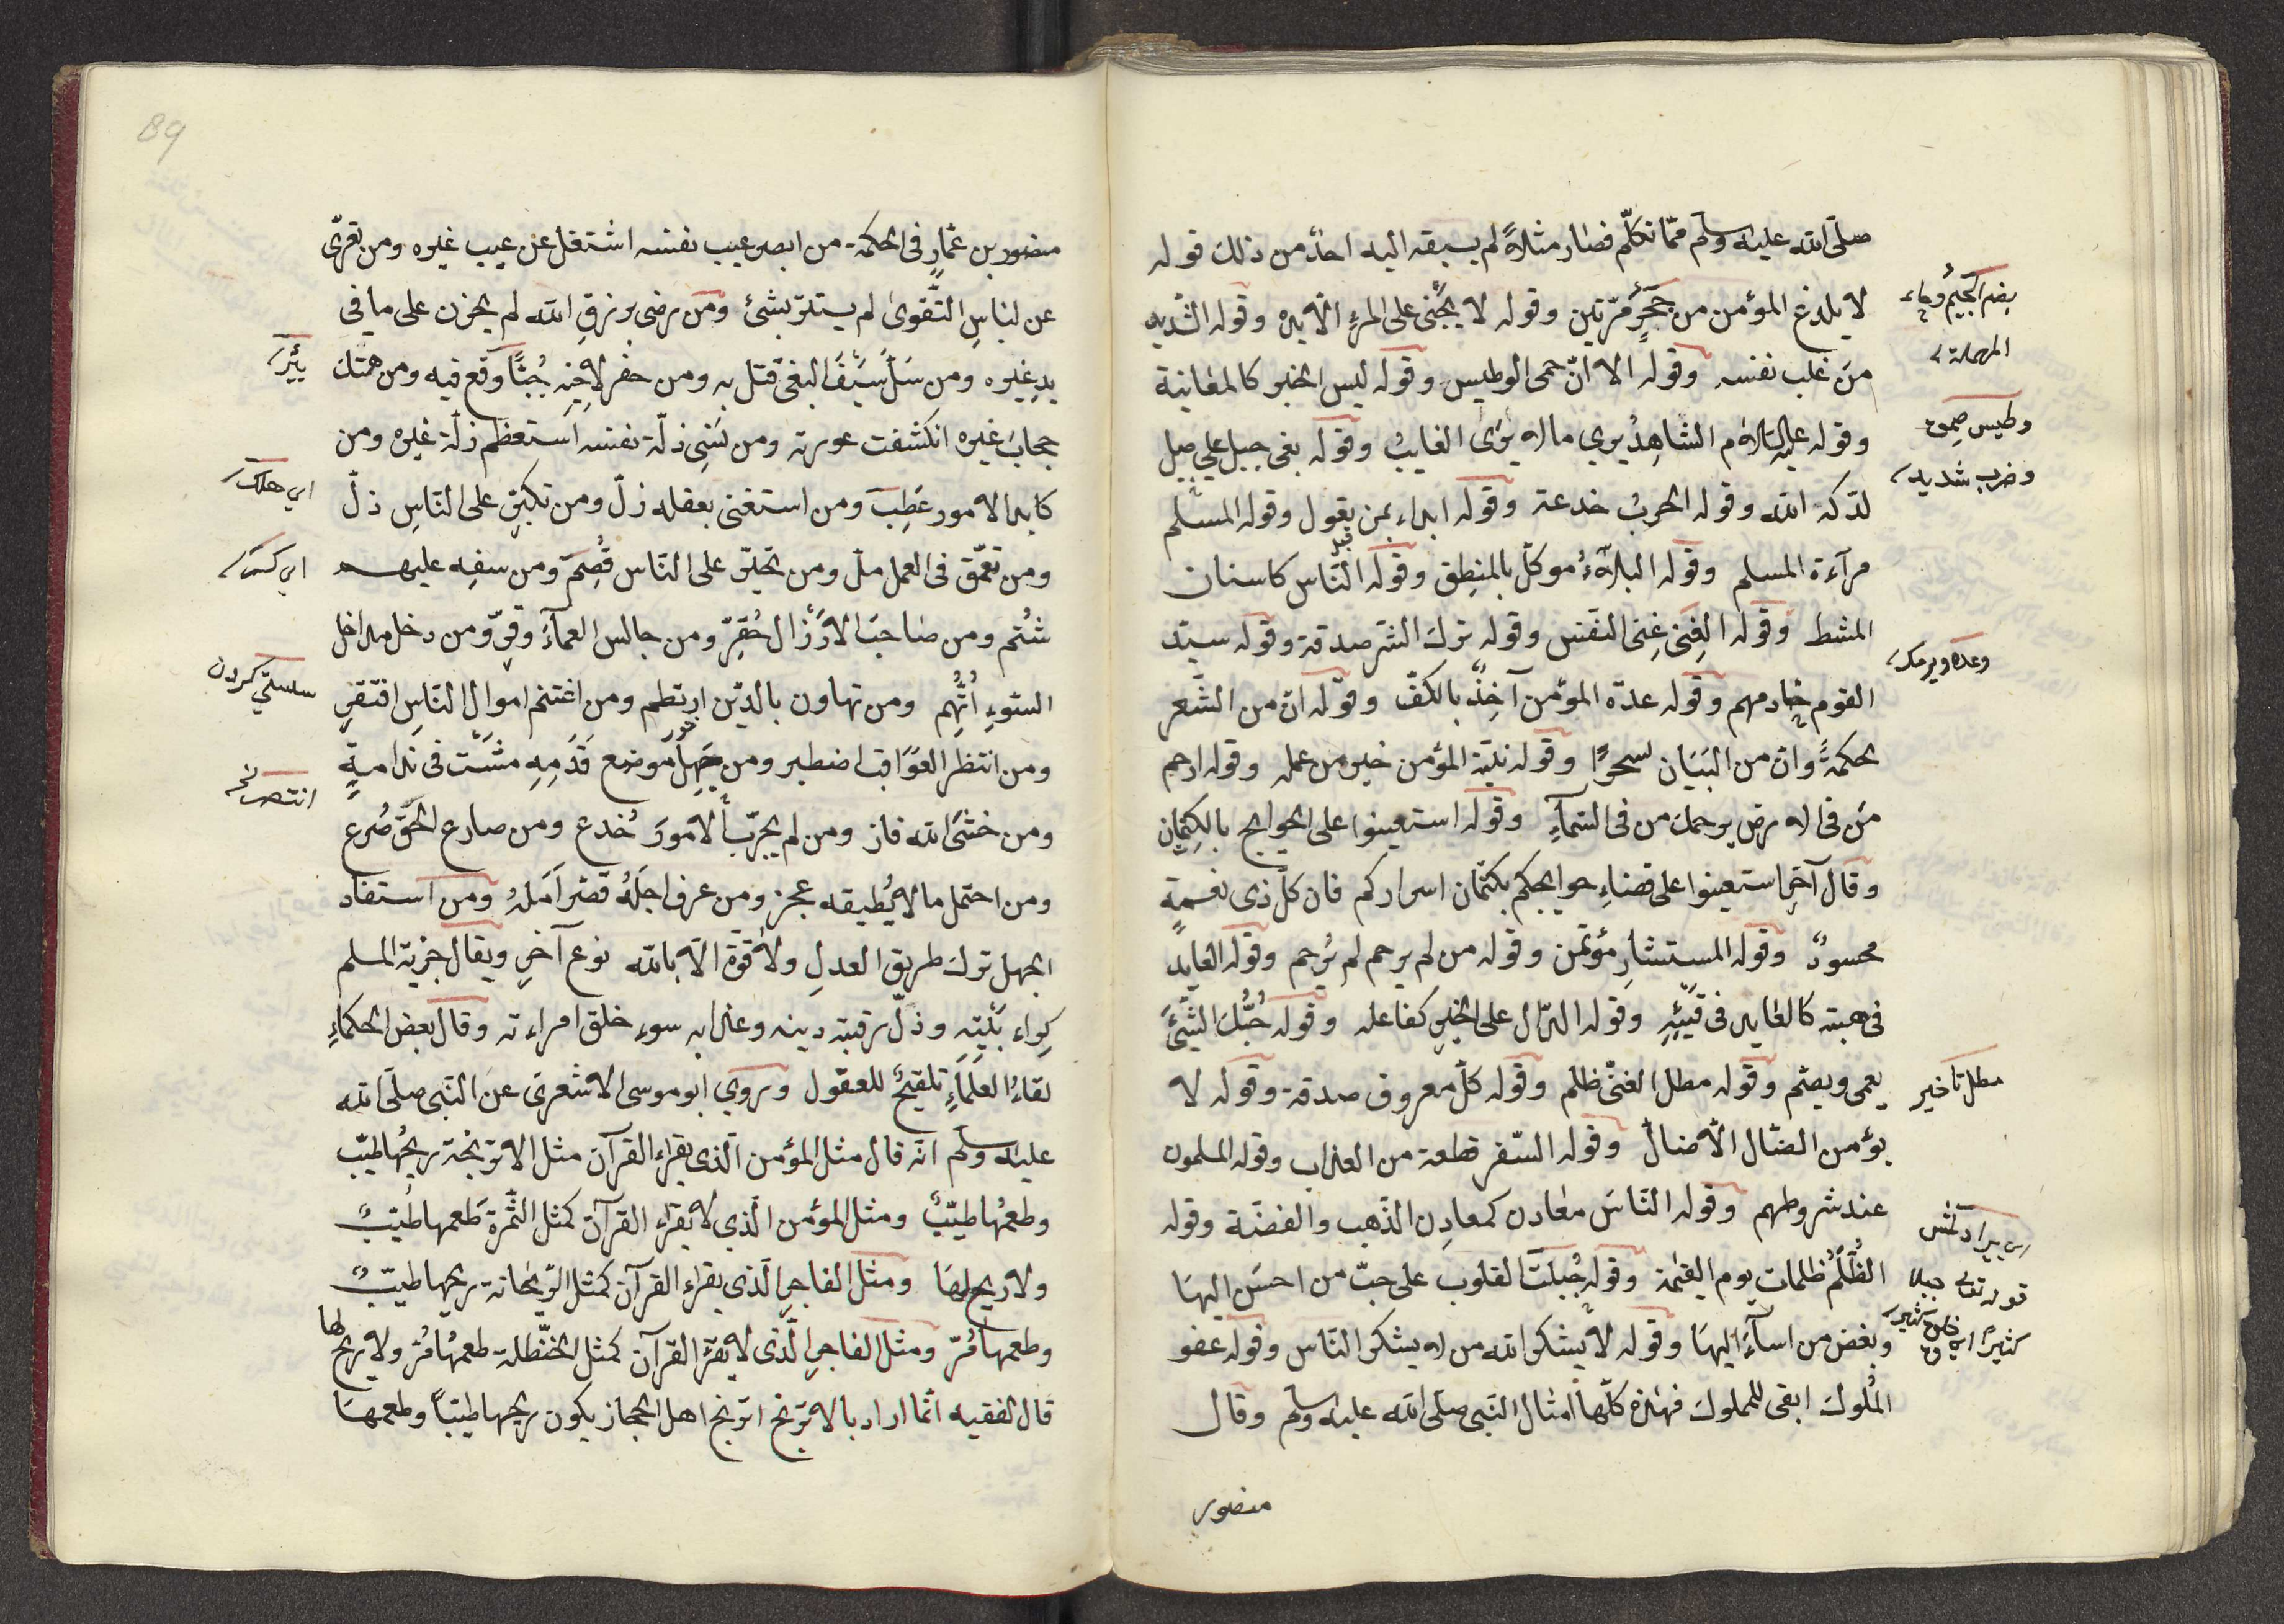 صلّى الله عليه وسلّم ممّا تكلّم فصار مثلاً لم يسبقه اليه احدٌ من ذلك قوله
لا يلدغ المؤمن من جحرٍ مرّتين وقوله لا يجنى على المرءِ الّا يده وقوله الشديد
من غلب نفسه وقوله الان حمى الوطيس وقوله ليس الخبر كالمعاينة
وقوله عليه السلام الشاهِدُ يري ما لا يرى الغايبُ وقوله بغى جبل على جبل
لدكه الله وقوله الحربُ خدعة وقوله ابداء بمن يعول وقوله المسلم
مرآءة المسلم وقوله البلآءُ موكّل بالمنطِق وقوله النّاس كاسنان
المشط وقوله الغِنى غِنى النّفس وقوله ترك الشر صدقة وقوله سيّد
القوم خادمهم وقوله عدة المؤمن آخِذٌ بالكفّ وقوله انّ من الشّعر
لحكمةً وان من البَيَان لسحرًا وقوله نيّة المؤمن خير من عمله وقوله ارحم
من فى الارض يرحمك من فى السّمآءِ وقوله استعينوا على الحوايج بالكِتمانِ
وقال آخر استعينوا على قضاءِ حوايجكم بكتمان اسراركم فان كلّ ذى نعمةٍ
محسودٌ وقوله المستشار مؤتمن وقوله من لم يرحم لم يُرحم وقوله العايد
فى هبته كالعايد فى قَيْئِهِ وقوله الدّال على الخيرِ كفاعله وقوله حُبُّكَ الشّئَ
يعمى ويصم وقوله مطل الغنىّ ظلم وقوله كلّ معروف صدقة وقوله لا
يؤمن الضّال الّا ضالّ وقوله السّفر قطعة من العذاب وقوله المسلمون
عند شروطهم وقوله النّاسَ معادن كمعادِن الذّهب والفضّة وقوله
الظُلْمُ ظلمات يوم القيٰمة وقوله جُبلت القلوب على حبّ من احسَن اليهَا
وبغض من اسآءَ اليهَا وقوله لا يشكر الله من لا يشكر النّاس وقوله عفو
المُلوك ابقى للمملوك فهذه كلّها امثال النّبى صلّى الله عليه وسلّم وقال
منصور
بضم الجيم وحاء
المهملة
وطيس صيحق
وضرب شديد
وعده ويرمك
مطل تأخير
قوله تعالى جبلا
كثيرًا اي
89
منصور بن عمّار فى الحكمة من ابصر عيب نفسه اشتغل عن عيب غيره ومن تعرّى
عن لباسِ التّقوى لم يستتر بشئ ومن رضى برزقِ الله لم يحزن على ما فى
يدِ غيره ومن سَلَّ سَيْفَ البغىِ قتل به ومن حفر لاخِيه جُبًّا وقع فيه ومن هتك
حجابَ غيره انكشفت عورته ومن نَسِى زلّة نفسه استعظم زلّة غيره ومن
كابد الامور عَطِبَ ومن استغنى بعقله زلّ ومن تكبّر على النّاسِ ذلّ
ومن تعمّق فى العمل ملّ ومن تجبّر على النّاس قُصِمَ ومن سفِه عليهم
شُتم ومن صَاحبَ الارْذال حُقِّرَ ومن جالس العلمآءَ وقِّر ومن دخل مداخل
السّوءِ اُتُّهِم ومن تهاون بالدّين ارتطم ومن اغتنم اموال النّاس افتقر
ومن انتظر العوَاقب اضطبر ومن جَهِلَ موضع قَدَمِهِ مشَت فى ندامةٍ
ومن خشىَ الله فاز ومن لم يجرّب الامورَ خُدع ومن صارع الحقّ صُرع
ومن احتمل ما لا يُطيقه عجز ومن عرف اجلَهُ قصّر اَملهُ ومن استفاد
الجهل ترك طريق العدلِ ولا قوّة الّا بالله نوع آخر ويقال جزية المسلم
كِراء بَيْتِهِ وذلّ رقبته دينه وعذابه سوء خلق امراءته وقال بعض الحكماءِ
لقاءُ العلماءِ تلقيحٌ للعقول وروي ابو موسى الاشعرىّ عن النّبى صلّى الله
عليه وسلّم انّه قال مثل المؤمن الّذى يقراء القرآن مثل الاترنجة ريحُها طيّب
وطعمُها طيّبٌ ومثل المؤمن الّذي لا يقراء القرآن كمثل الثّمرة طعمها طيّبٌ
ولا ريح لهَا ومثل الفاجرِ الّذى يقراء القرآن كمثل الرّيحانة ريحها طيّبٌ
وطعمها مُرّ ومثل الفاجرِ الّذى لا يقرَّ القرآن كمثل الحنظلة طعمُها مُرّ ولا ريح لها
قال الفقيه انّما اراد بالاترنج اترنج اهل الحجاز يكون ريحها طيّباً وطعمهَا
بئر
اي هلك
اي كسر